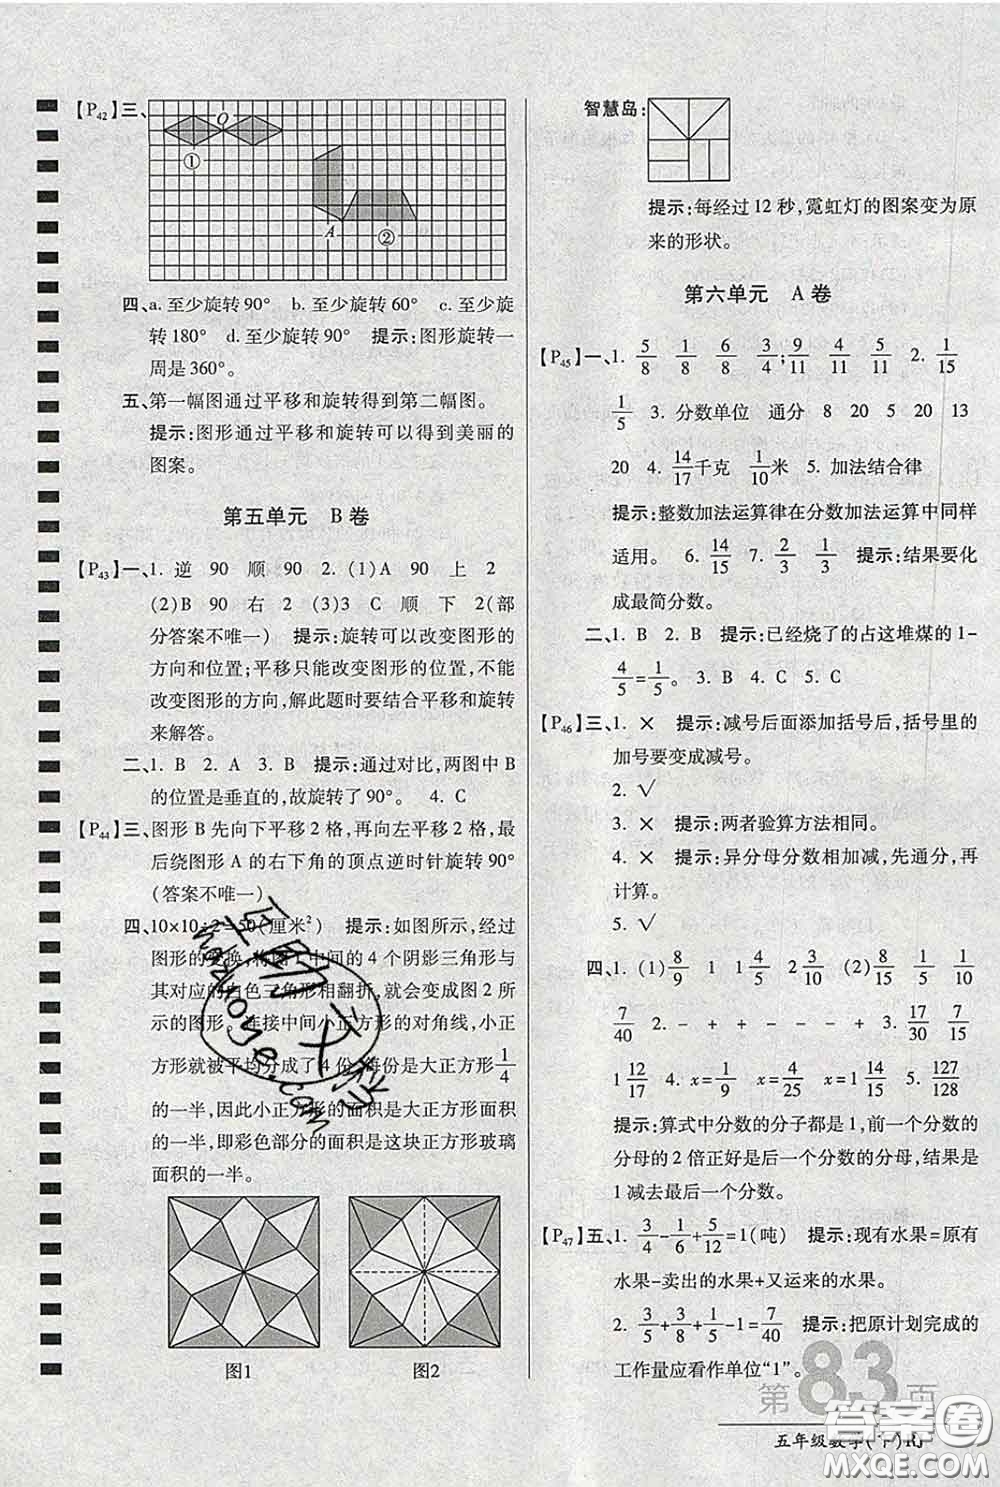 【P42】三、
O
①
A
②
四、a. 至少旋转 90° b. 至少旋转 60° c. 至少旋
转 180° d. 至少旋转 90° 提示:图形旋转一
周是 360°。
五、第一幅图通过平移和旋转得到第二幅图。
提示:图形通过平移和旋转可以得到美丽的
图案。
第五单元 B 卷
【P43】一、1. 逆 90 顺 90 2. (1)A 90 上 2
(2)B 90 右 2 (3)3 C 顺 下 2(部
分答案不唯一) 提示:旋转可以改变图形的
方向和位置;平移只能改变图形的位置,不能
改变图形的方向,解此题时要结合平移和旋转
来解答。
二、1. B 2. A 3. B 提示:通过对比,两图中 B
的位置是垂直的,故旋转了 90°。 4. C
【P44】三、图形 B 先向下平移 2 格,再向左平移 2 格,最
后绕图形 A 的右下角的顶点逆时针旋转 90°
(答案不唯一)
四、10×10÷2=50(厘米²) 提示:如图所示,经过
图形的变换,将图 1 中间的 4 个阴影三角形与
其对应的白色三角形相翻折,就会变成图 2 所
示的图形。连接中间小正方形的对角线,小正
方形就被平均分成了 4 份,每份是大正方形 1/4
的一半,因此小正方形的面积是大正方形面积
的一半,即彩色部分的面积是这块正方形玻璃
面积的一半。
图1 图2
智慧岛:
提示:每经过 12 秒,霓虹灯的图案变为原
来的形状。
第六单元 A 卷
【P45】一、1. 5/8 1/8 6/8 3/4; 9/11 4/11 5/11 2. 1/15
1/5 3. 分数单位 通分 8 20 5 20 13
20 4. 14/17千克 1/10米 5. 加法结合律
提示:整数加法运算律在分数加法运算中同样
适用。 6. 14/15 7. 2/3 1/3 提示:结果要化
成最简分数。
二、1. B 2. B 提示:已经烧了的占这堆煤的 1-
4/5=1/5。 3. B 4. C 5. C
【P46】三、1. × 提示:减号后面添加括号后,括号里的
加号要变成减号。
2. √
3. × 提示:两者验算方法相同。
4. × 提示:异分母分数相加减,先通分,再
计算。
5. √
四、1. (1) 8/9 1 1 4/5 2 3/10 (2) 8/15 1/5 1/10
7/40 2. - + + - - - + 3. 17/30 7/15
1 12/17 4. x=1/9 x=4/25 x=1 14/15 5. 127/128
提示:算式中分数的分子都是 1,前一个分数的
分母的 2 倍正好是后一个分数的分母,结果是
1 减去最后一个分数。
【P47】五、1. 3/4-1/6+5/12=1(吨) 提示:现有水果=原有
水果-卖出的水果+又运来的水果。
2. 3/5+3/8+1/5-1=7/40 提示:把原计划完成的
工作量应看作单位“1”。
第83页
五年级数学(下)RJ
答案圈
MXQE.COM